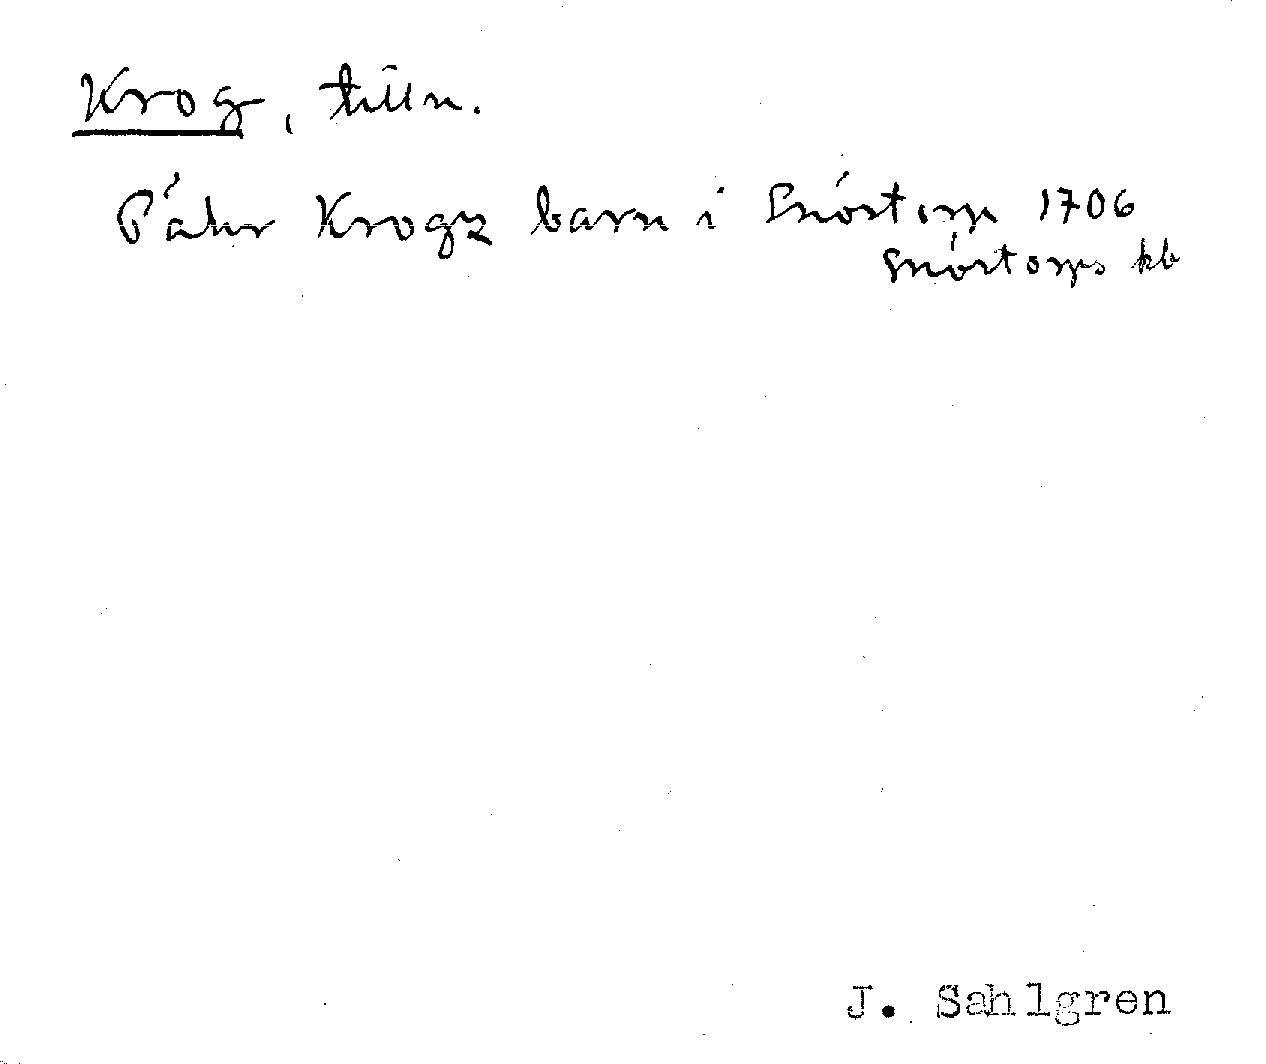 Krog, tilln.
Påhr Krogz barn i Snöstorp 1706
Snöstorps kb
J. Sahlgren